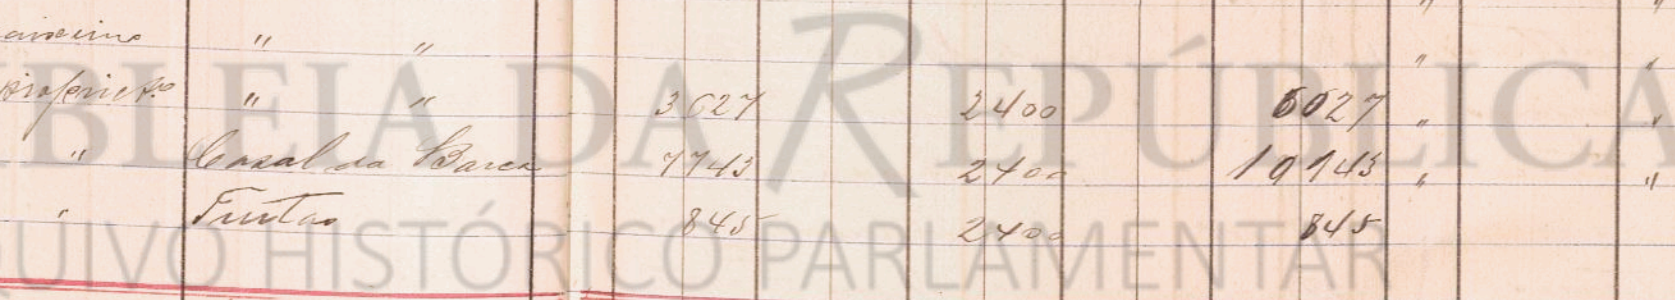 " "
" " 3627 2400 6027 " "
" Casal da Barca 7743 2400 10143 " "
" Frutas 845 2400 845
ASSEMBLEIA DA REPÚBLICA
ARQUIVO HISTÓRICO PARLAMENTAR